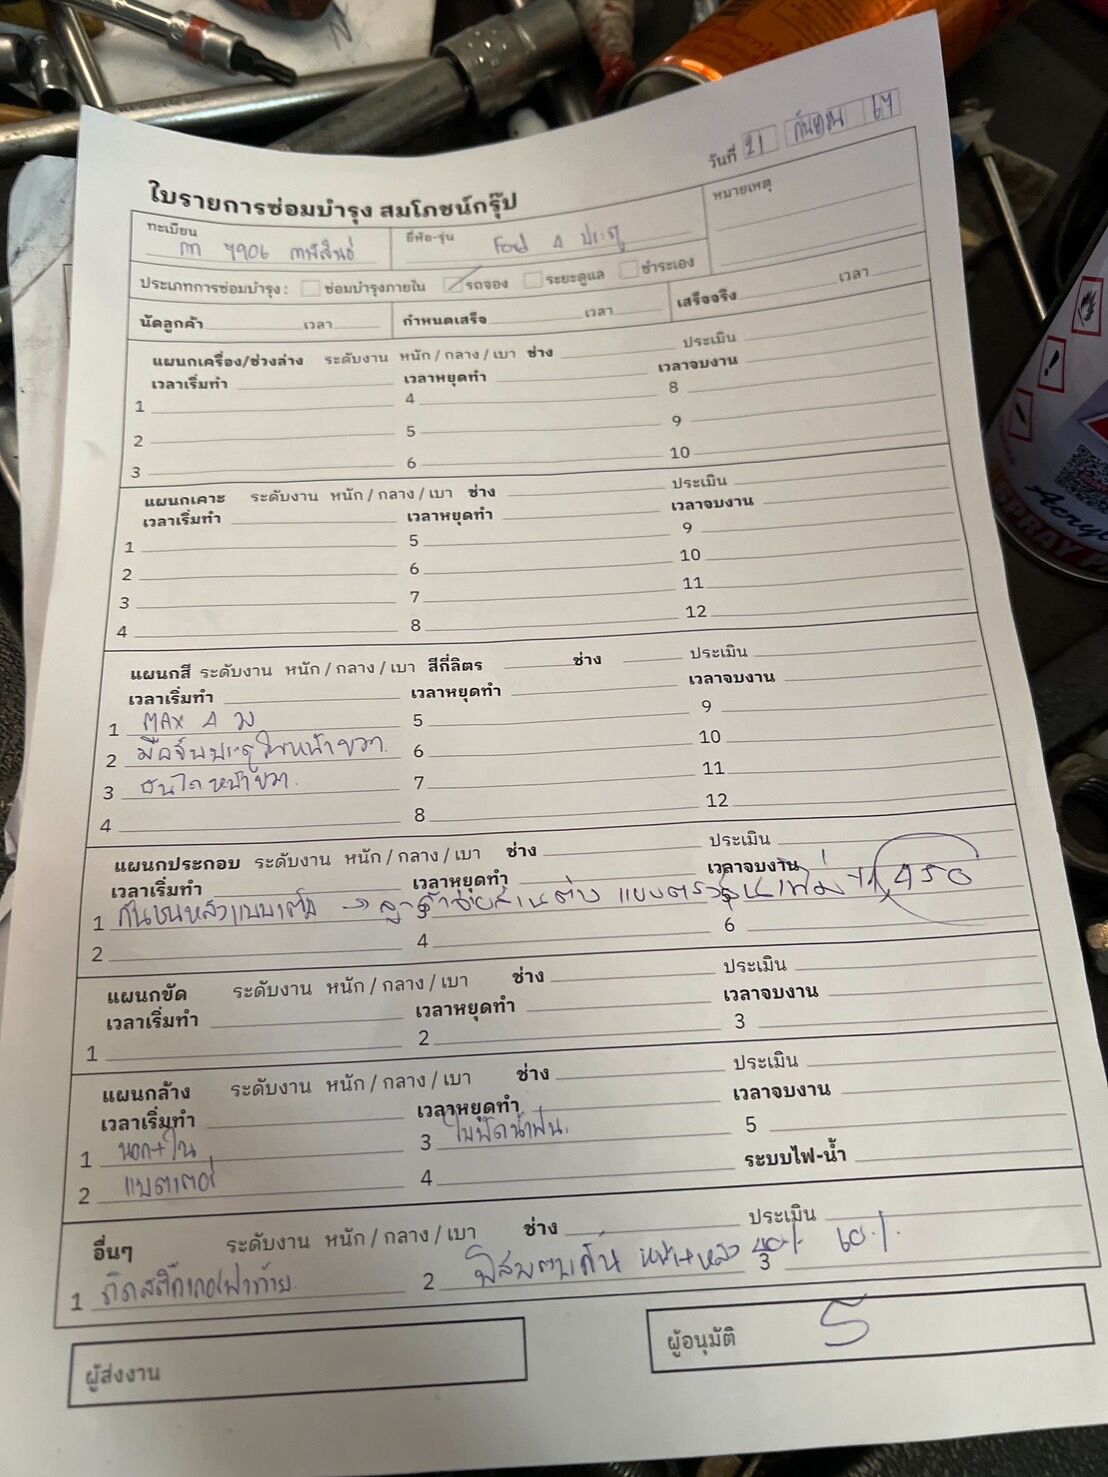 วันที่ 21 กันยายน 67
ใบรายการซ่อมบำรุง สมโภชน์กรุ๊ป
หมายเหตุ
ทะเบียน กท 7906 กาฬสินธุ์ ยี่ห้อ-รุ่น Ford 4 ประตู
ประเภทการซ่อมบำรุง : ซ่อมบำรุงภายใน รถจอง ระยะดูแล ชำระเอง
นัดลูกค้า เวลา กำหนดเสร็จ เวลา เสร็จจริง เวลา
แผนกเครื่อง/ช่วงล่าง ระดับงาน หนัก / กลาง / เบา ช่าง ประเมิน
เวลาเริ่มทำ เวลาหยุดทำ เวลาจบงาน
1 4 8
2 5 9
3 6 10
แผนกเคาะ ระดับงาน หนัก / กลาง / เบา ช่าง ประเมิน
เวลาเริ่มทำ เวลาหยุดทำ เวลาจบงาน
1 5 9
2 6 10
3 7 11
4 8 12
แผนกสี ระดับงาน หนัก / กลาง / เบา สีกี่ลิตร ช่าง ประเมิน
เวลาเริ่มทำ เวลาหยุดทำ เวลาจบงาน
1 MAX 4 วง 5 9
2 มือจับประตูในหน้าขวา 6 10
3 บันไดหน้าขวา 7 11
4 8 12
แผนกประกอบ ระดับงาน หนัก / กลาง / เบา ช่าง ประเมิน
เวลาเริ่มทำ เวลาหยุดทำ เวลาจบงาน
1 กันชนหลังแบบเต็ม → ลูกค้าจ่ายส่วนต่าง เพิ่ม 1,450
2 4 6
แผนกขัด ระดับงาน หนัก / กลาง / เบา ช่าง ประเมิน
เวลาเริ่มทำ เวลาหยุดทำ เวลาจบงาน
1 2 3
แผนกล้าง ระดับงาน หนัก / กลาง / เบา ช่าง ประเมิน
เวลาเริ่มทำ เวลาหยุดทำ เวลาจบงาน
1 นอก+ใน 3 ใบปัดน้ำฝน. 5
2 แบตเตอรี่ 4 ระบบไฟ-น้ำ
อื่นๆ ระดับงาน หนัก / กลาง / เบา ช่าง ประเมิน
1 ติดสติ๊กเกอร์ฝาท้าย 2 ฟิล์ม หน้า+หลัง 40% 60% 3
ผู้ส่งงาน ผู้อนุมัติ
Acryl
SPRAY